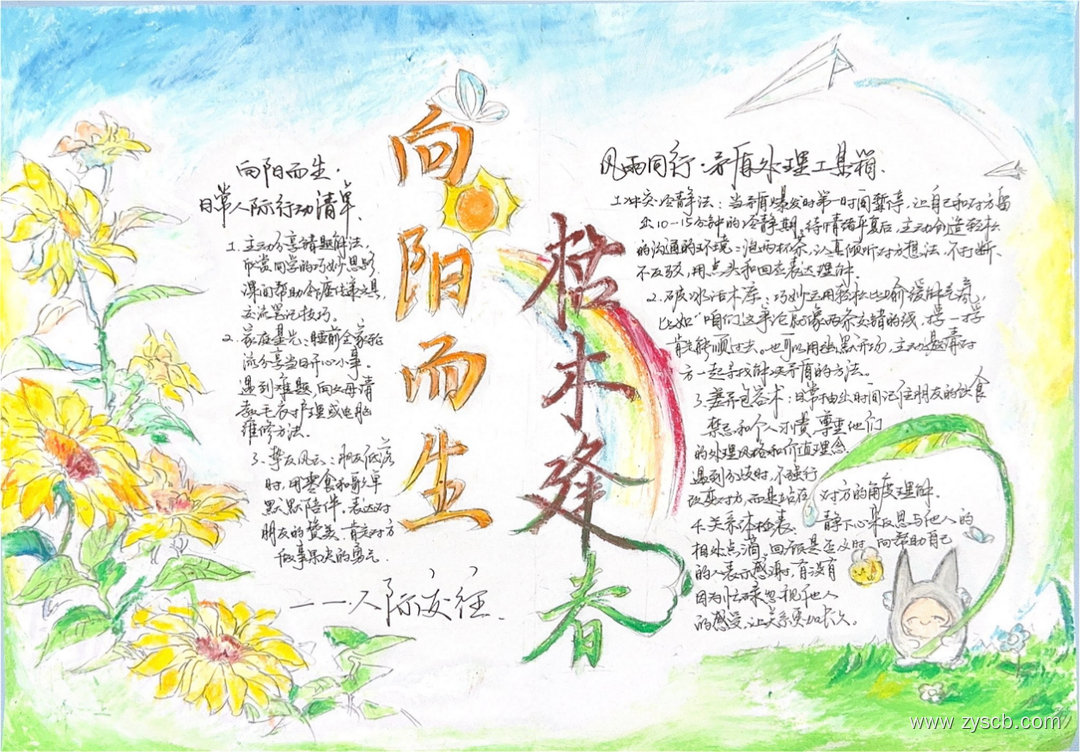 向阳而生
枯木逢春
向阳而生.
日常人际行动清单.
1.主动分享错题解法,
欣赏同学的巧妙思路
课间帮助邻座传递文具,
交流笔记技巧。
2.家庭星光:睡前全家轮
流分享当日开心小事,
遇到难题,向父母请
教毛衣护理或电脑
维修方法。
3.挚友风云:朋友低落
时,用零食和歌单
默默陪伴,表达对
朋友的赞美,肯定对方
做事果决的勇气.
——.人际交往.
风雨同行·矛盾处理工具箱.
1.冲突冷静法:当矛盾爆发的第一时间暂停,让自己和对方留
出10-15分钟的冷静期,待情绪平复后,主动创造轻松
的沟通的环境:泡两杯茶,认真倾听对方想法,不打断、
不反驳,用点头和回应表达理解.
2.破冰话术库:巧妙运用轻松比喻缓解气氛,
比如"咱们这争论就像两条交错的线,捋一捋
肯定能顺过去。也可以用幽默开场,主动邀请对
方一起寻找解决矛盾的方法。
3.差异包容术:日常抽出时间记住朋友的饮食
禁忌和个人习惯,尊重他们
的处理风格和价值理念
遇到分歧时,不强行
改变对方,而是站在 对方的角度理解.
4.关系体检表: 静下心来反思与他人的
相处点滴,回顾是否及时 向帮助自己
的人表示感谢,有没有
因为忙碌忽视他人
的感受,让关系更加长久。
www.zyscb.com